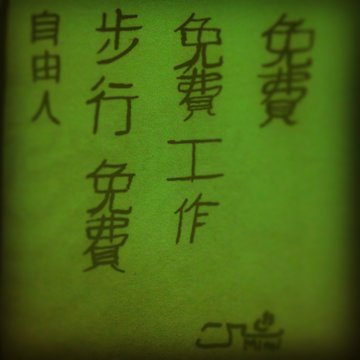 免費
免費工作
步行免費
自由人